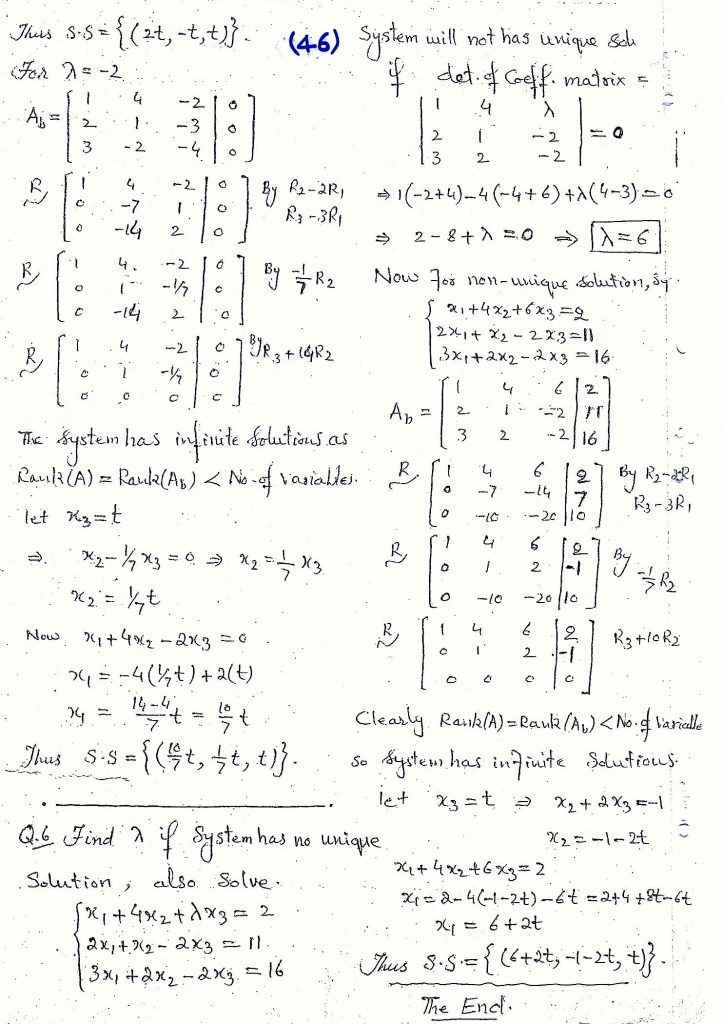 Thus S.S = {(2t, -t, t)}.
For λ = -2
A_b = [ 1 4 -2 | 0
2 1 -3 | 0
3 -2 -4 | 0 ]
R [ 1 4 -2 | 0
0 -7 1 | 0
0 -14 2 | 0 ] By R2-2R1
R3-3R1
R [ 1 4 -2 | 0
0 1 -1/7 | 0
0 -14 2 | 0 ] By -1/7 R2
R [ 1 4 -2 | 0
0 1 -1/7 | 0
0 0 0 0 ] By R3+14R2
The System has infinite Solutions as
Rank(A) = Rank(A_b) < No. of variables.
let x3 = t
⇒ x2 - 1/7 x3 = 0 ⇒ x2 = 1/7 x3
x2 = 1/7 t
Now x1 + 4x2 - 2x3 = 0
x1 = -4(1/7 t) + 2(t)
x1 = 14-4/7 t = 10/7 t
Thus S.S = {(10/7 t, 1/7 t, t)}.
Q.6 Find λ if System has no unique
Solution, also Solve.
{ x1 + 4x2 + λx3 = 2
2x1 + x2 - 2x3 = 11
3x1 + 2x2 - 2x3 = 16
(46) System will not has unique Sol
if det. of Coeff. matrix =
| 1 4 λ
2 1 -2
3 2 -2 | = 0
⇒ 1(-2+4) - 4(-4+6) + λ(4-3) = 0
⇒ 2 - 8 + λ = 0 ⇒ λ = 6
Now for non-unique solution, Sy.
{ x1 + 4x2 + 6x3 = 2
2x1 + x2 - 2x3 = 11
3x1 + 2x2 - 2x3 = 16
A_b = [ 1 4 6 | 2
2 1 -2 | 11
3 2 -2 | 16 ]
R [ 1 4 6 | 2
0 -7 -14 | 7
0 -10 -20 | 10 ] By R2-2R1
R3-3R1
R [ 1 4 6 | 2
0 1 2 | -1
0 -10 -20 | 10 ] By -1/7 R2
R [ 1 4 6 | 2
0 1 2 | -1
0 0 0 | 0 ] R3+10R2
Clearly Rank(A) = Rank(A_b) < No. of Variable
so System has infinite Solutions.
let x3 = t ⇒ x2 + 2x3 = -1
x2 = -1-2t
x1 + 4x2 + 6x3 = 2
x1 = 2-4(-1-2t)-6t = 2+4+8t-6t
x1 = 6+2t
Thus S.S = {(6+2t, -1-2t, t)}.
The End.